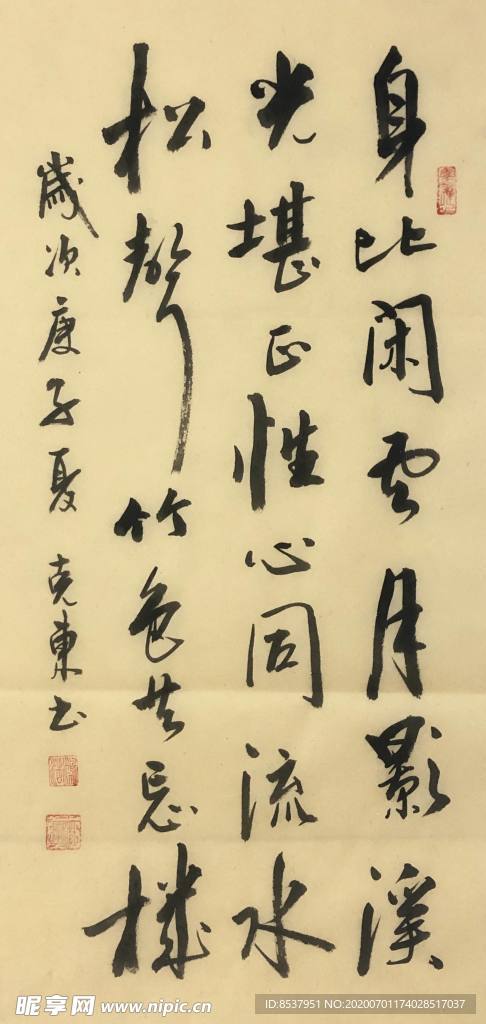 身比闲云月影溪
光堪正性心同流水
松声竹色共忘机
歲次庚子夏 克東书
昵享网 www.nipic.cn
ID:8537951 NO:20200701174028517037